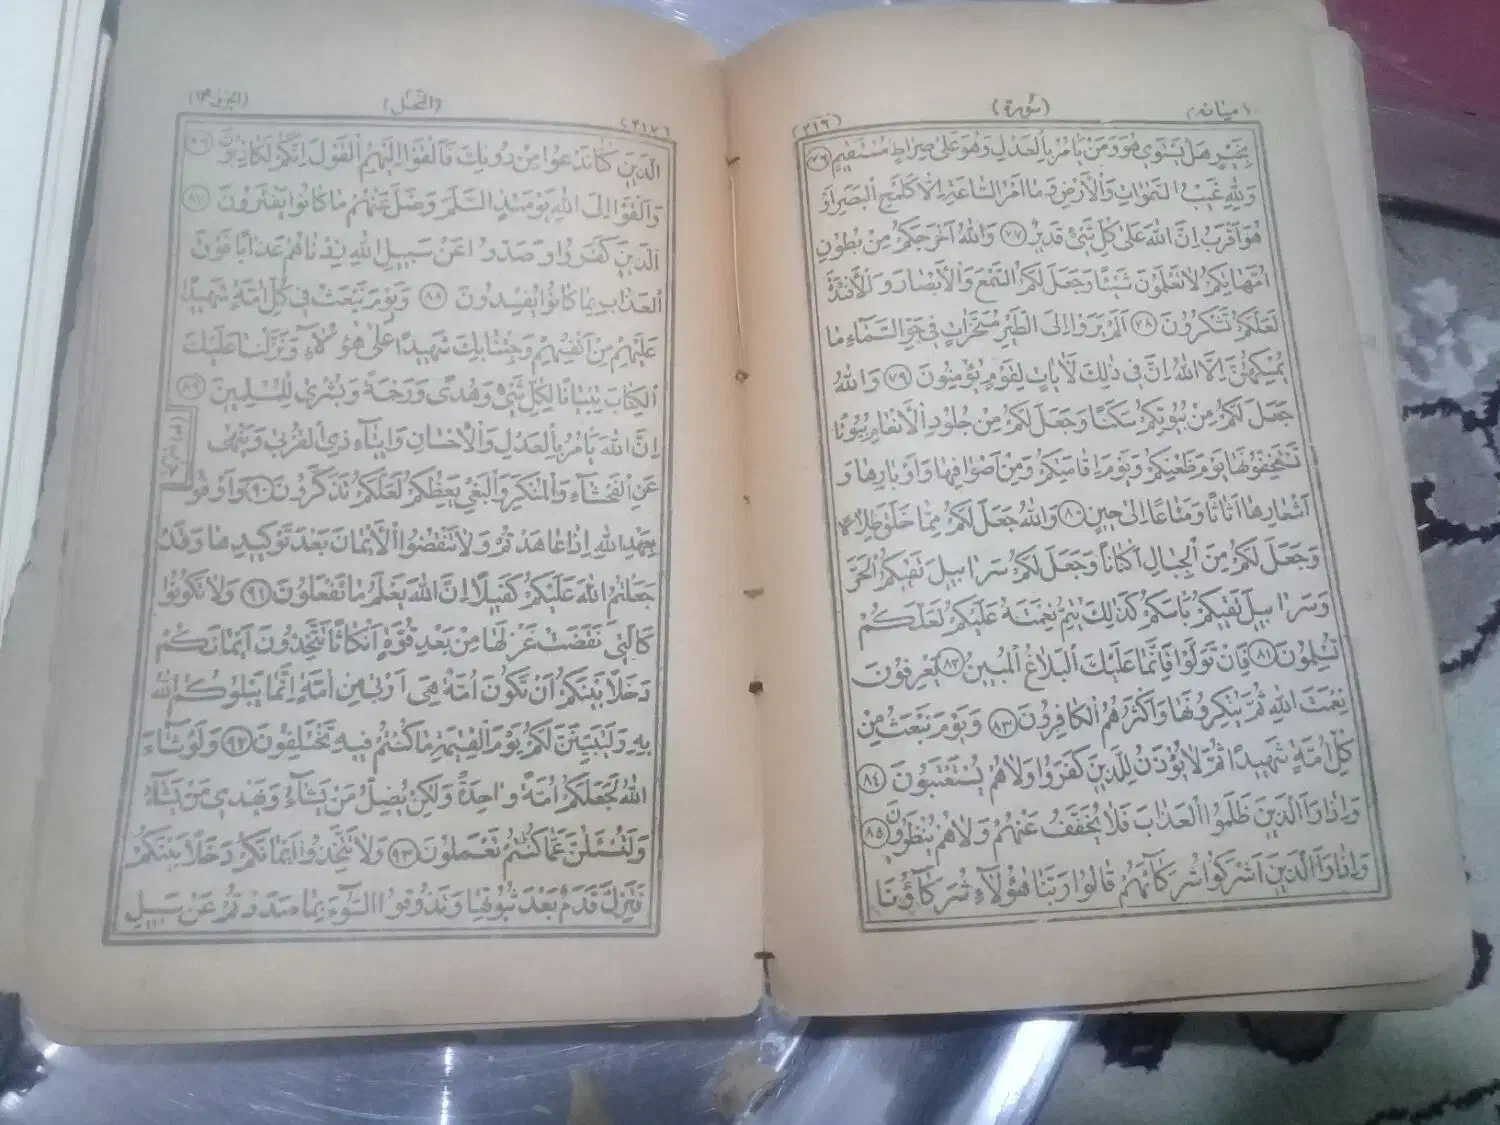 (میانه)
(سُورة)
(٢١٦)
بِخَيْرٍ هَلْ يَسْتَوِي هُوَ وَمَنْ يَأْمُرُ بِالْعَدْلِ وَهُوَ عَلَىٰ صِرَاطٍ مُسْتَقِيمٍ ٧٦
وَلِلّٰهِ غَيْبُ السَّمٰوَاتِ وَالْأَرْضِ وَمَا أَمْرُ السَّاعَةِ إِلَّا كَلَمْحِ الْبَصَرِ أَوْ
هُوَ أَقْرَبُ إِنَّ اللّٰهَ عَلَىٰ كُلِّ شَيْءٍ قَدِيرٌ ٧٧ وَاللّٰهُ أَخْرَجَكُمْ مِنْ بُطُونِ
أُمَّهَاتِكُمْ لَا تَعْلَمُونَ شَيْئًا وَجَعَلَ لَكُمُ السَّمْعَ وَالْأَبْصَارَ وَالْأَفْئِدَةَ
لَعَلَّكُمْ تَشْكُرُونَ ٧٨ أَلَمْ يَرَوْا إِلَى الطَّيْرِ مُسَخَّرَاتٍ فِي جَوِّ السَّمَآءِ مَا
يُمْسِكُهُنَّ إِلَّا اللّٰهُ إِنَّ فِي ذٰلِكَ لَآيَاتٍ لِقَوْمٍ يُؤْمِنُونَ ٧٩ وَاللّٰهُ
جَعَلَ لَكُمْ مِنْ بُيُوتِكُمْ سَكَنًا وَجَعَلَ لَكُمْ مِنْ جُلُودِ الْأَنْعَامِ بُيُوتًا
تَسْتَخِفُّونَهَا يَوْمَ ظَعْنِكُمْ وَيَوْمَ إِقَامَتِكُمْ وَمِنْ أَصْوَافِهَا وَأَوْبَارِهَا وَ
أَشْعَارِهَا أَثَاثًا وَمَتَاعًا إِلَىٰ حِينٍ ٨٠ وَاللّٰهُ جَعَلَ لَكُمْ مِمَّا خَلَقَ ظِلَالًا
وَجَعَلَ لَكُمْ مِنَ الْجِبَالِ أَكْنَانًا وَجَعَلَ لَكُمْ سَرَابِيلَ تَقِيكُمُ الْحَرَّ
وَسَرَابِيلَ تَقِيكُمْ بَأْسَكُمْ كَذٰلِكَ يُتِمُّ نِعْمَتَهُ عَلَيْكُمْ لَعَلَّكُمْ
تُسْلِمُونَ ٨١ فَإِنْ تَوَلَّوْا فَإِنَّمَا عَلَيْكَ الْبَلَاغُ الْمُبِينُ ٨٢ يَعْرِفُونَ
نِعْمَتَ اللّٰهِ ثُمَّ يُنْكِرُونَهَا وَأَكْثَرُهُمُ الْكَافِرُونَ ٨٣ وَيَوْمَ نَبْعَثُ مِنْ
كُلِّ أُمَّةٍ شَهِيدًا ثُمَّ لَا يُؤْذَنُ لِلَّذِينَ كَفَرُوا وَلَا هُمْ يُسْتَعْتَبُونَ ٨٤
وَإِذَا رَأَى الَّذِينَ ظَلَمُوا الْعَذَابَ فَلَا يُخَفَّفُ عَنْهُمْ وَلَا هُمْ يُنْظَرُونَ ٨٥
وَإِذَا رَأَى الَّذِينَ أَشْرَكُوا شُرَكَآءَهُمْ قَالُوا رَبَّنَا هٰؤُلَآءِ شُرَكَآؤُنَا
(٢١٧)
(النَّحل)
(الجزو ١٤)
الَّذِينَ كُنَّا نَدْعُوا مِنْ دُونِكَ فَأَلْقَوْا إِلَيْهِمُ الْقَوْلَ إِنَّكُمْ لَكَاذِبُونَ ٨٦
وَأَلْقَوْا إِلَى اللّٰهِ يَوْمَئِذٍ السَّلَمَ وَضَلَّ عَنْهُمْ مَا كَانُوا يَفْتَرُونَ ٨٧
الَّذِينَ كَفَرُوا وَصَدُّوا عَنْ سَبِيلِ اللّٰهِ زِدْنَاهُمْ عَذَابًا فَوْقَ
الْعَذَابِ بِمَا كَانُوا يُفْسِدُونَ ٨٨ وَيَوْمَ نَبْعَثُ فِي كُلِّ أُمَّةٍ شَهِيدًا
عَلَيْهِمْ مِنْ أَنْفُسِهِمْ وَجِئْنَا بِكَ شَهِيدًا عَلَىٰ هٰؤُلَآءِ وَنَزَّلْنَا عَلَيْكَ
الْكِتَابَ تِبْيَانًا لِكُلِّ شَيْءٍ وَهُدًى وَرَحْمَةً وَبُشْرَىٰ لِلْمُسْلِمِينَ ٨٩
إِنَّ اللّٰهَ يَأْمُرُ بِالْعَدْلِ وَالْإِحْسَانِ وَإِيتَآءِ ذِي الْقُرْبَىٰ وَيَنْهَىٰ
عَنِ الْفَحْشَآءِ وَالْمُنْكَرِ وَالْبَغْيِ يَعِظُكُمْ لَعَلَّكُمْ تَذَكَّرُونَ ٩٠ وَأَوْفُوا
بِعَهْدِ اللّٰهِ إِذَا عَاهَدْتُمْ وَلَا تَنْقُضُوا الْأَيْمَانَ بَعْدَ تَوْكِيدِهَا وَقَدْ
جَعَلْتُمُ اللّٰهَ عَلَيْكُمْ كَفِيلًا إِنَّ اللّٰهَ يَعْلَمُ مَا تَفْعَلُونَ ٩١ وَلَا تَكُونُوا
كَالَّتِي نَقَضَتْ غَزْلَهَا مِنْ بَعْدِ قُوَّةٍ أَنْكَاثًا تَتَّخِذُونَ أَيْمَانَكُمْ
دَخَلًا بَيْنَكُمْ أَنْ تَكُونَ أُمَّةٌ هِيَ أَرْبَىٰ مِنْ أُمَّةٍ إِنَّمَا يَبْلُوكُمُ اللّٰهُ
بِهِ وَلَيُبَيِّنَنَّ لَكُمْ يَوْمَ الْقِيٰمَةِ مَا كُنْتُمْ فِيهِ تَخْتَلِفُونَ ٩٢ وَلَوْ شَآءَ
اللّٰهُ لَجَعَلَكُمْ أُمَّةً وَاحِدَةً وَلٰكِنْ يُضِلُّ مَنْ يَشَآءُ وَيَهْدِي مَنْ يَشَآءُ
وَلَتُسْئَلُنَّ عَمَّا كُنْتُمْ تَعْمَلُونَ ٩٣ وَلَا تَتَّخِذُوا أَيْمَانَكُمْ دَخَلًا بَيْنَكُمْ
فَتَزِلَّ قَدَمٌ بَعْدَ ثُبُوتِهَا وَتَذُوقُوا السُّوٓءَ بِمَا صَدَدْتُمْ عَنْ سَبِيلِ